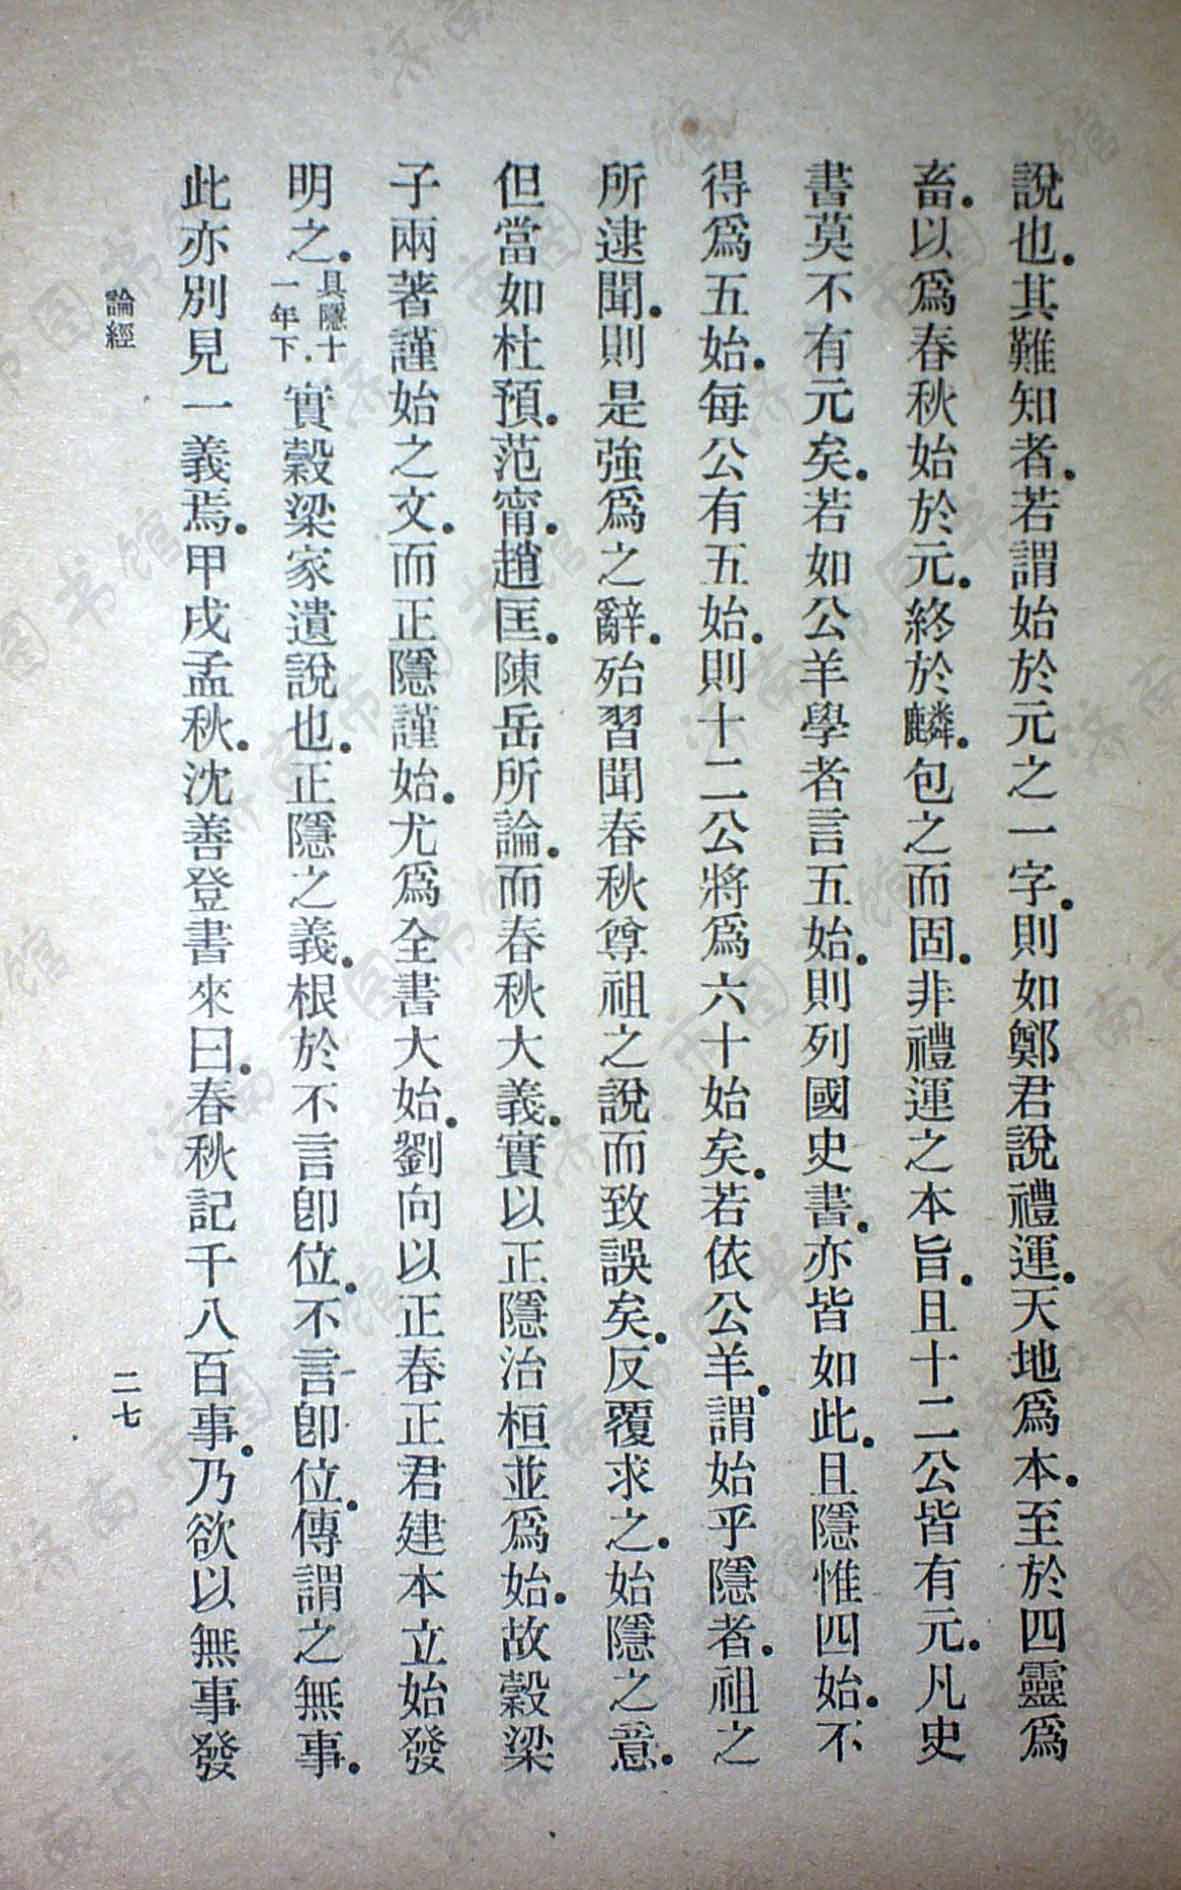 說也.其難知者.若謂始於元之一字.則如鄭君說禮運.天地爲本.至於四靈爲
畜.以爲春秋始於元.終於麟.包之而固.非禮運之本旨.且十二公皆有元.凡史
書莫不有元矣.若如公羊學者言五始.則列國史書.亦皆如此.且隱惟四始.不
得爲五始.每公有五始.則十二公將爲六十始矣.若依公羊.謂始乎隱者.祖之
所逮聞.則是強爲之辭.殆習聞春秋尊祖之說而致誤矣.反覆求之.始隱之意.
但當如杜預.范甯.趙匡.陳岳所論.而春秋大義.實以正隱治桓並爲始.故穀梁
子兩著謹始之文.而正隱謹始.尤爲全書大始.劉向以正春正君建本立始發
明之.具隱十一年下.實穀梁家遺說也.正隱之義.根於不言卽位.不言卽位.傳謂之無事.
此亦別見一義焉.甲戌孟秋.沈善登書來曰.春秋記千八百事.乃欲以無事發
論經
二七
济南市图书馆